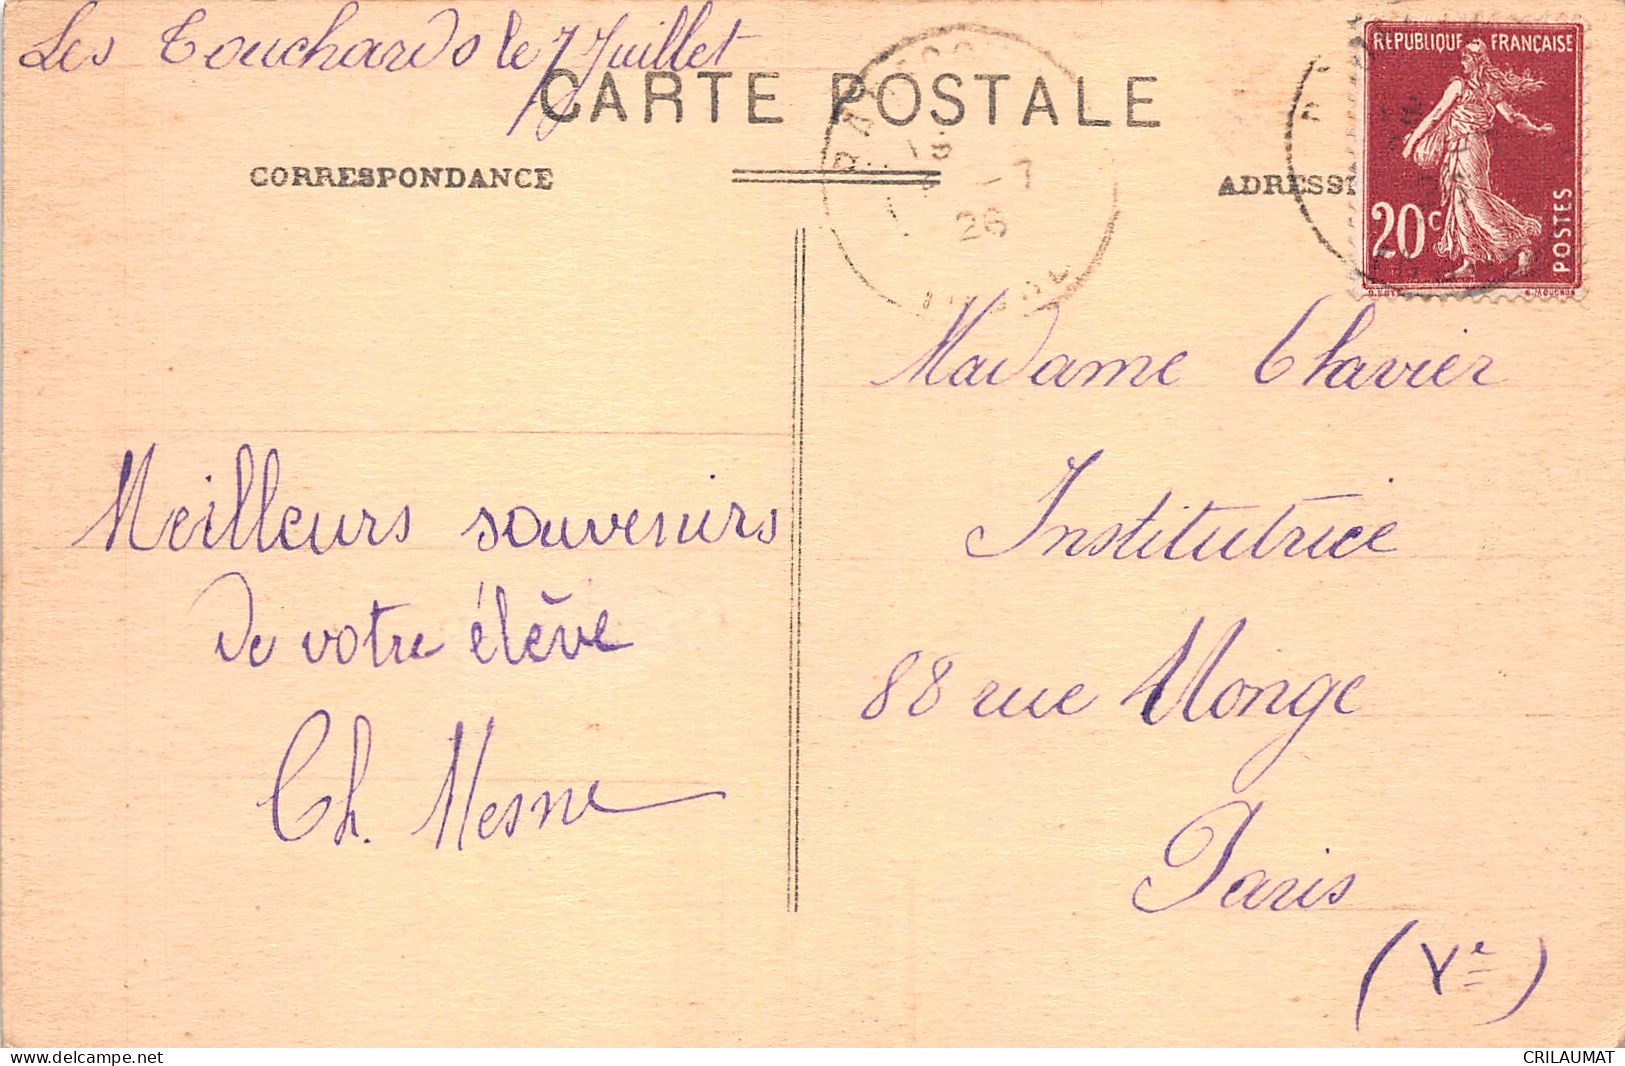 Les Touchards le 7 Juillet
CARTE POSTALE
CORRESPONDANCE
ADRESSE
REPUBLIQUE FRANÇAISE
20c
POSTES
-7
26
Madame Clavier
Institutrice
88 rue Monge
Paris
(Ve)
Meilleurs souvenirs
de votre élève
Ch. Mesne
CRILAUMAT